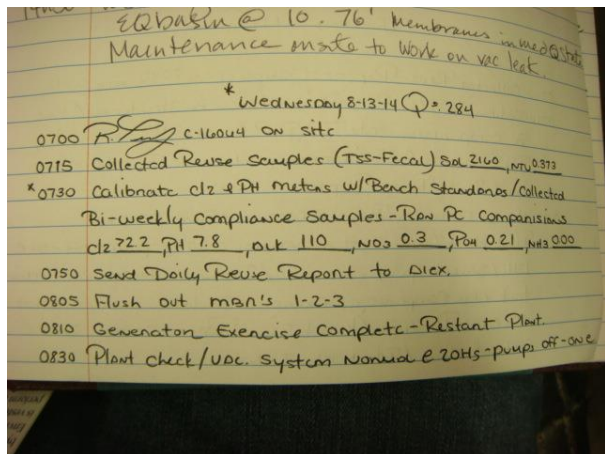 EQ basin @ 10.76' Membranes in med Q state
Maintenance onsite to work on vac leak.
*Wednesday 8-13-14 Q=.284
0700 R. C-16064 on site
0715 Collected Reuse Samples (TSS-Fecal) Sol 2160, NTU 0.373
*0730 Calibrate cl2 & PH meters w/Bench Standards/Collected
Bi-weekly Compliance Samples-Ran PC Comparisions
cl2 >2.2, PH 7.8, alk 110, NO3 0.3, PO4 0.21, NH3 0.00
0750 Send Daily Reuse Report to Alex.
0805 Flush out MBR's 1-2-3
0810 Generator Exercise Complete-Restart Plant.
0830 Plant check/vac. System Normal @ 20Hg-pumps off-one